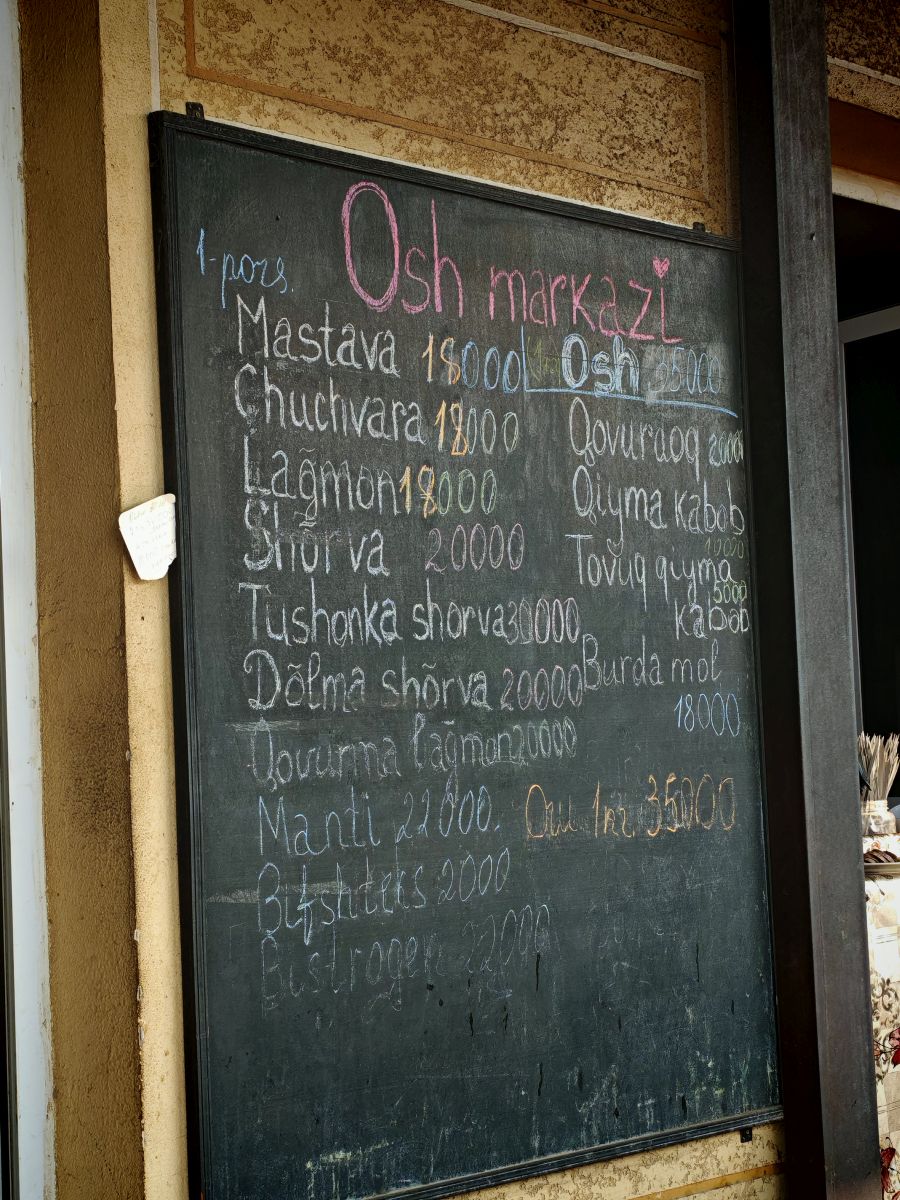 Osh markazi
1-pors.
Mastava 18000
Chuchvara 18000
Lag̃mon 18000
Shõrva 20000
Tushonka shorva 30000
Dõlma shõrva 20000
Qovurma lag̃mon 20000
Manti 22000.
Bifshteks 2000
Bistrogen 22000
Osh 35000
Qovurdoq 20000
Qiyma kabob
10000
Tovuq qiyma
5000
kabob
Burda mol
18000
35000